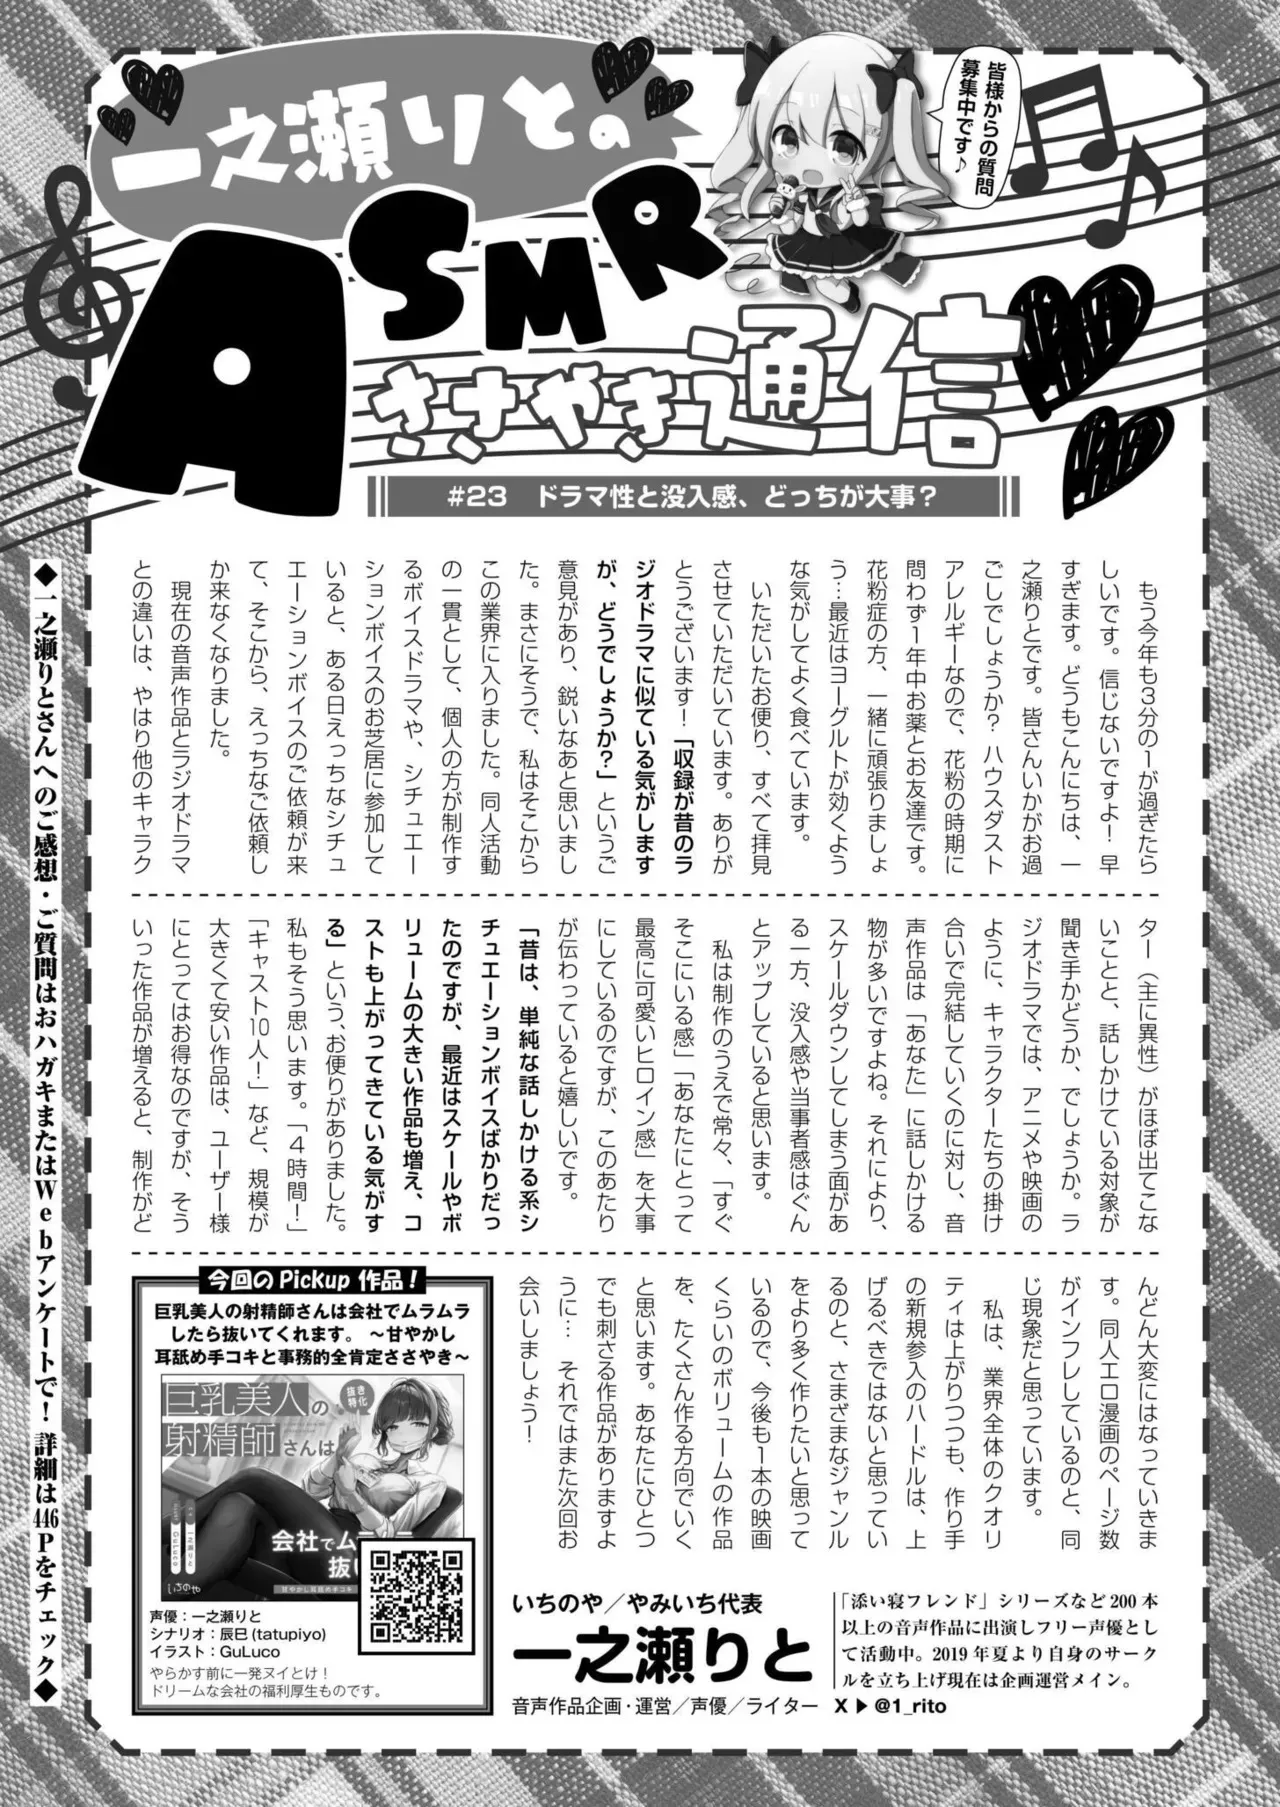 一之瀬りとの
ASMR
ささやき通信
皆様からの質問
募集中です♪
#23　ドラマ性と没入感、どっちが大事？
もう今年も3分の1が過ぎたら
しいです。信じないですよ！早
すぎます。どうもこんにちは、一
之瀬りとです。皆さんいかがお過
ごしでしょうか？ハウスダスト
アレルギーなので、花粉の時期に
問わず1年中お薬とお友達です。
花粉症の方、一緒に頑張りましょ
う…最近はヨーグルトが効くよう
な気がしてよく食べています。
いただいたお便り、すべて拝見
させていただいています。ありが
とうございます！「収録が昔のラ
ジオドラマに似ている気がします
が、どうでしょうか？」というご
意見があり、鋭いなあと思いまし
た。まさにそうで、私はそこから
この業界に入りました。同人活動
の一貫として、個人の方が制作す
るボイスドラマや、シチュエー
ションボイスのお芝居に参加して
いると、ある日えっちなシチュ
エーションボイスのご依頼が来
て、そこから、えっちなご依頼し
か来なくなりました。
現在の音声作品とラジオドラマ
との違いは、やはり他のキャラク
ター（主に異性）がほぼ出てこな
いことと、話しかけている対象が
聞き手かどうか、でしょうか。ラ
ジオドラマでは、アニメや映画の
ように、キャラクターたちの掛け
合いで完結していくのに対し、音
声作品は「あなた」に話しかける
物が多いですよね。それにより、
スケールダウンしてしまう面があ
る一方、没入感や当事者感はぐん
とアップしていると思います。
私は制作のうえで常々、「すぐ
そこにいる感」「あなたにとって
最高に可愛いヒロイン感」を大事
にしているのですが、このあたり
が伝わっていると嬉しいです。
「昔は、単純な話しかける系シ
チュエーションボイスばかりだっ
たのですが、最近はスケールやボ
リュームの大きい作品も増え、コ
ストも上がってきている気がす
る」という、お便りがありました。
私もそう思います。「4時間！」
「キャスト10人！」など、規模が
大きくて安い作品は、ユーザー様
にとってはお得なのですが、そう
いった作品が増えると、制作がど
んどん大変にはなっていきま
す。同人エロ漫画のページ数
がインフレしているのと、同
じ現象だと思っています。
私は、業界全体のクオリ
ティは上がりつつも、作り手
の新規参入のハードルは、上
げるべきではないと思ってい
るのと、さまざまなジャンル
をより多く作りたいと思って
いるので、今後も1本の映画
くらいのボリュームの作品
を、たくさん作る方向でいく
と思います。あなたにひとつ
でも刺さる作品がありますよ
うに…　それではまた次回お
会いしましょう！
今回のPickup作品！
巨乳美人の射精師さんは会社でムラムラ
したら抜いてくれます。　～甘やかし
耳舐め手コキと事務的全肯定ささやき～
巨乳美人の
射精師さんは
抜き
特化
会社でム
抜い
甘やかし耳舐め手コキ
いちのや
GuLuco
声優：一之瀬りと
シナリオ：辰巳(tatupiyo)
イラスト：GuLuco
やらかす前に一発ヌイとけ！
ドリームな会社の福利厚生ものです。
いちのや／やみいち代表
一之瀬りと
音声作品企画・運営／声優／ライター
「添い寝フレンド」シリーズなど200本
以上の音声作品に出演しフリー声優とし
て活動中。2019年夏より自身のサーク
ルを立ち上げ現在は企画運営メイン。
X▶@1_rito
◆一之瀬りとさんへのご感想・ご質問はおハガキまたはWebアンケートで！詳細は446Pをチェック◆